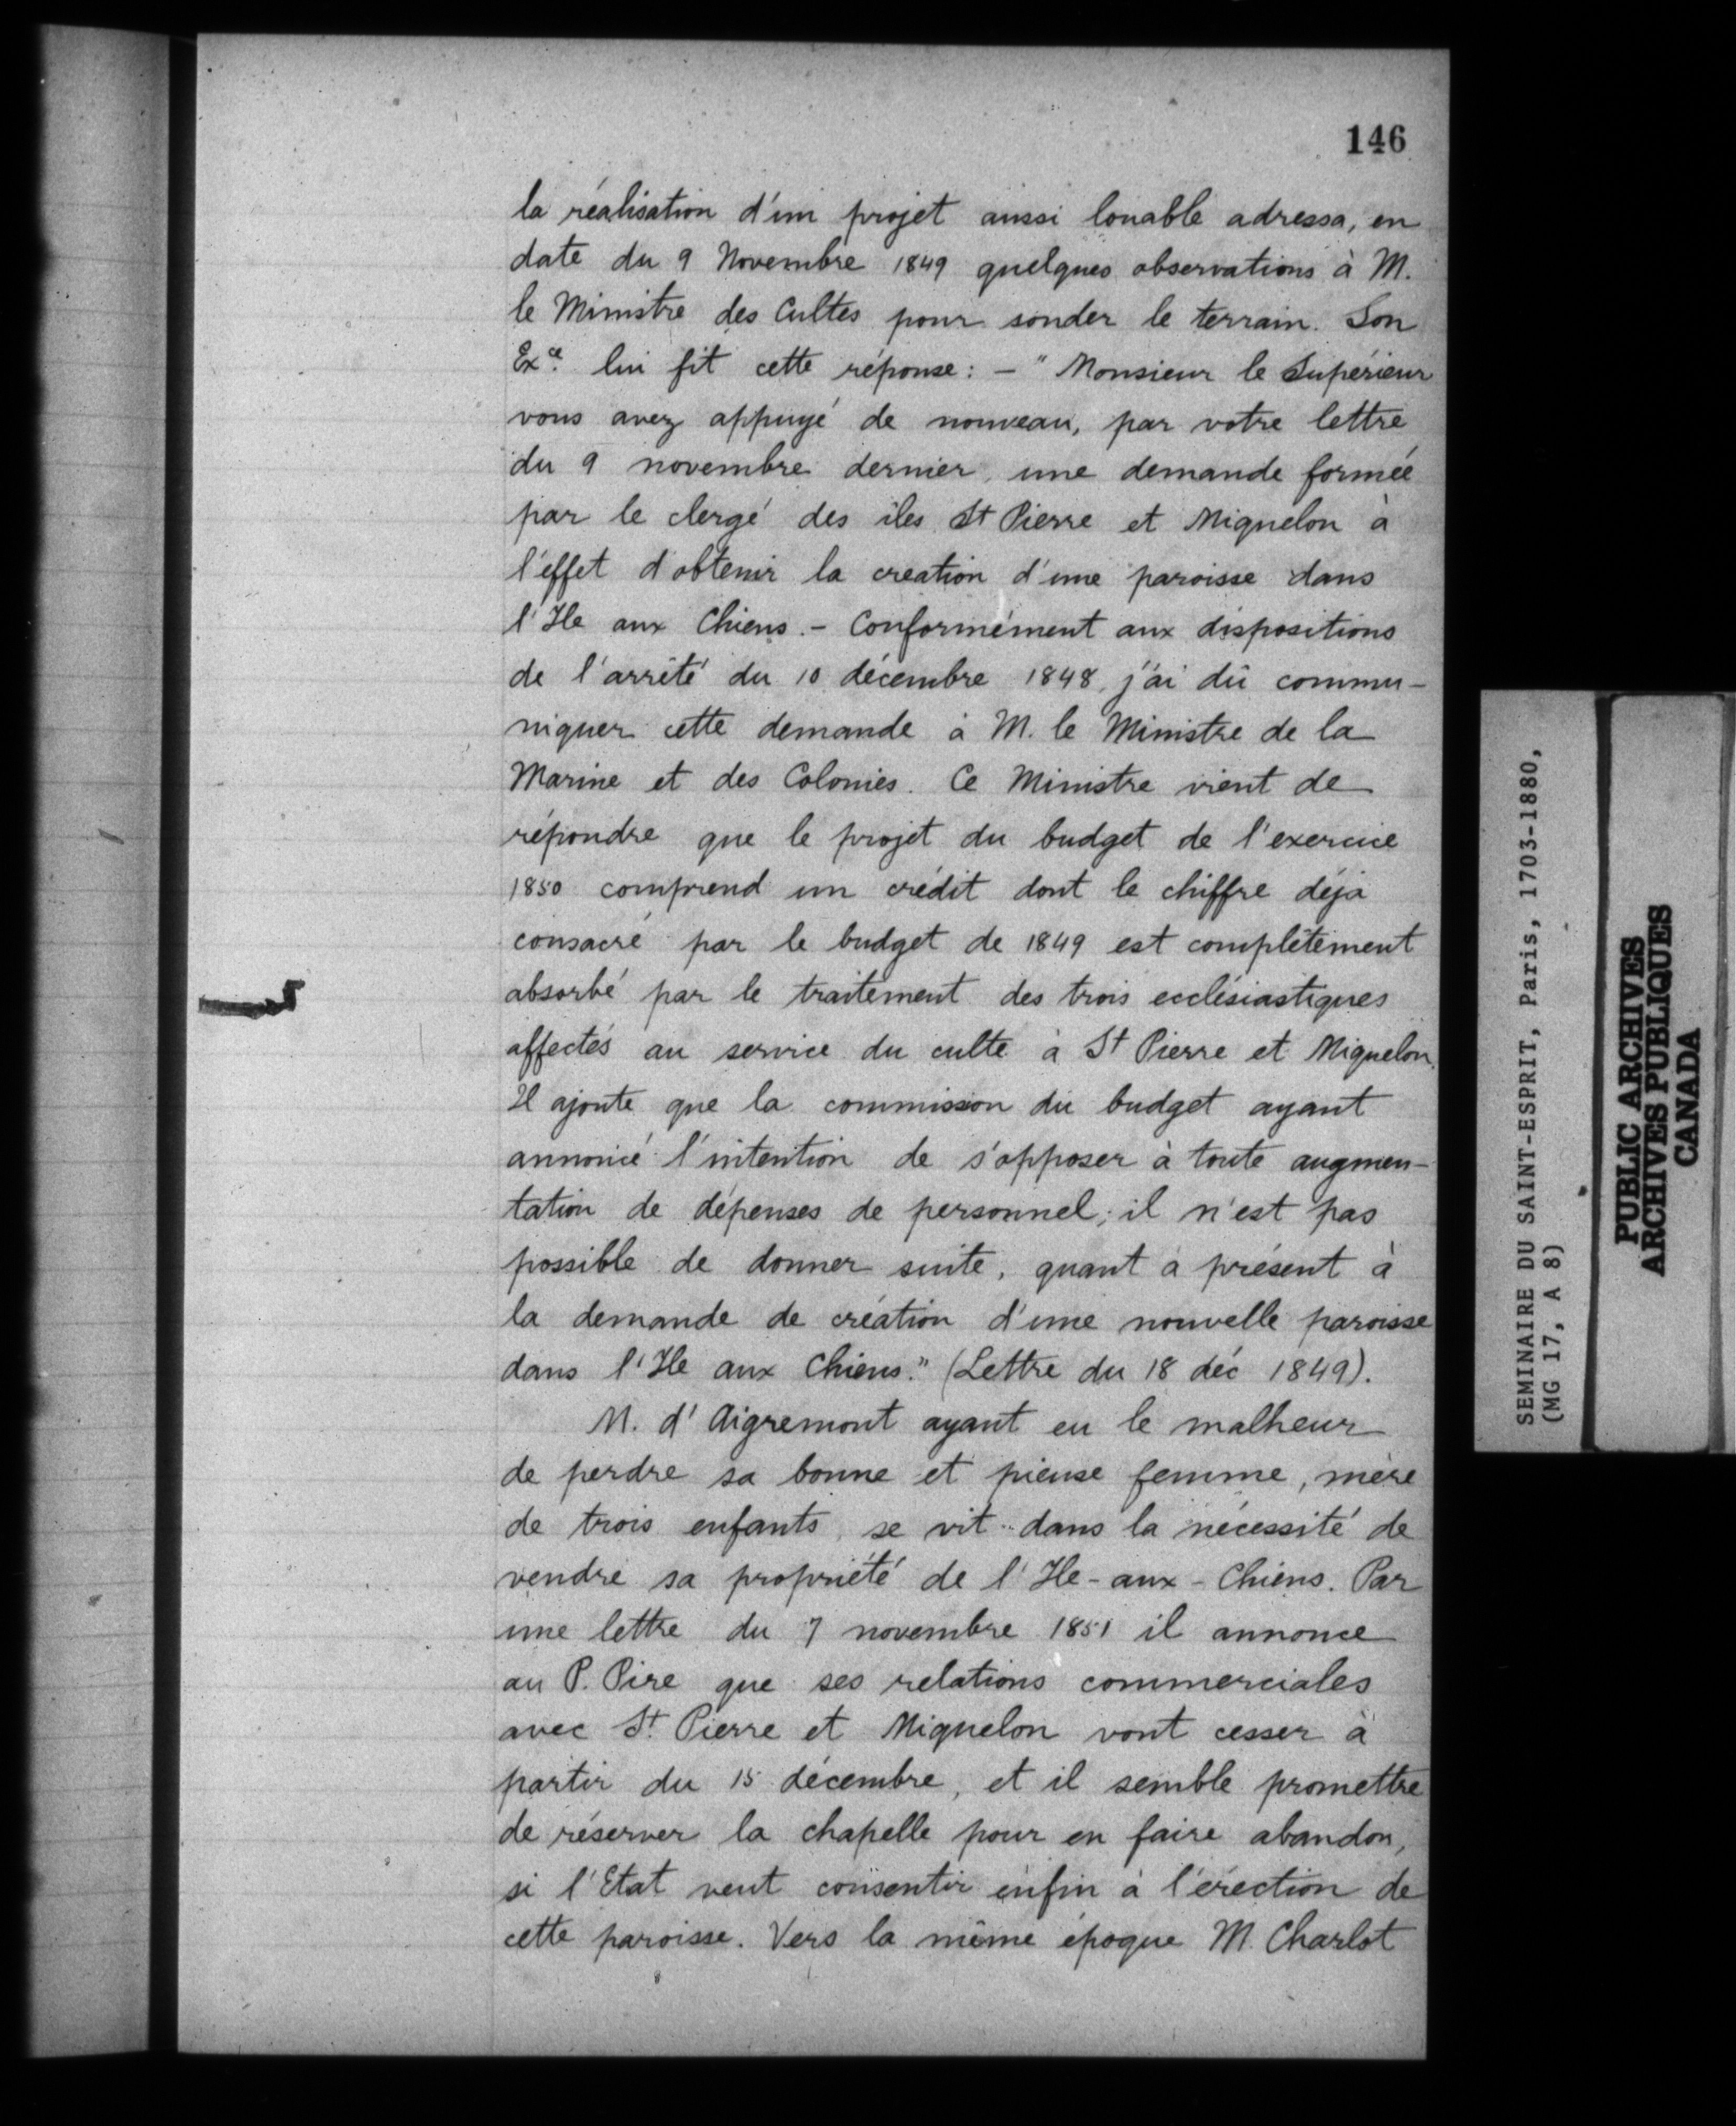 146
la réalisation d'un projet aussi louable adressa, en
date du 9 Novembre 1849 quelques observations à M.
le Ministre des Cultes pour sonder le terrain. Son
Exce lui fit cette réponse : - "Monsieur le Supérieur
vous avez appuyé de nouveau, par votre lettre
du 9 novembre dernier, une demande formée
par le clergé des îles St Pierre et Miquelon à
l'effet d'obtenir la creation d'une paroisse dans
l'Ile aux Chiens. - Conformément aux dispositions
de l'arrêté du 10 décembre 1848, j'ai dû commu-
niquer cette demande à M. le Ministre de la
Marine et des Colonies. Ce Ministre vient de
répondre que le projet du budget de l'exercice
1850 comprend un crédit dont le chiffre déjà
consacré par le budget de 1849 est complètement
absorbé par le traitement des trois ecclésiastiques
affectés au service du culte à St Pierre et Miquelon.
Il ajoute que la commission du budget ayant
annoncé l'intention de s'opposer à toute augmen-
tation de dépenses de personnel; il n'est pas
possible de donner suite, quant à présent à
la demande de création d'une nouvelle paroisse
dans l'Ile aux Chiens." (Lettre du 18 déc 1849).
M. d'Aigremont ayant eu le malheur
de perdre sa bonne et pieuse femme, mère
de trois enfants, se vit dans la nécessité de
vendre sa propriété de l'Ile-aux-Chiens. Par
une lettre du 7 novembre 1851 il annonce
au P. Pire que ses relations commerciales
avec St Pierre et Miquelon vont cesser à
partir du 15 décembre, et il semble promettre
de réserver la chapelle pour en faire abandon,
si l'Etat veut consentir enfin à l'érection de
cette paroisse. Vers la même époque M. Charlot
SEMINAIRE DU SAINT-ESPRIT, Paris, 1703-1880,
(MG 17, A 8)
PUBLIC ARCHIVES
ARCHIVES PUBLIQUES
CANADA